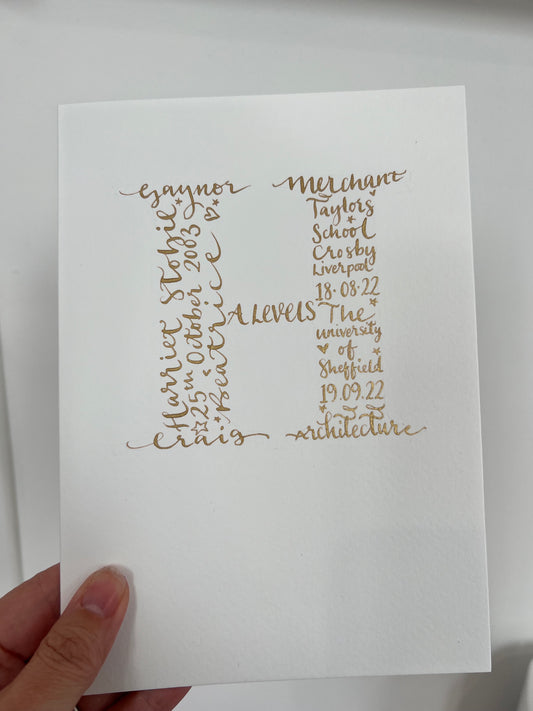 Gaynor
Harriet Stobie
25th October 2003
Beatrice
Craig
A LEVELS
Merchant
Taylors
School
Crosby
Liverpool
18.08.22
The
university
of
Sheffield
19.09.22
Architecture